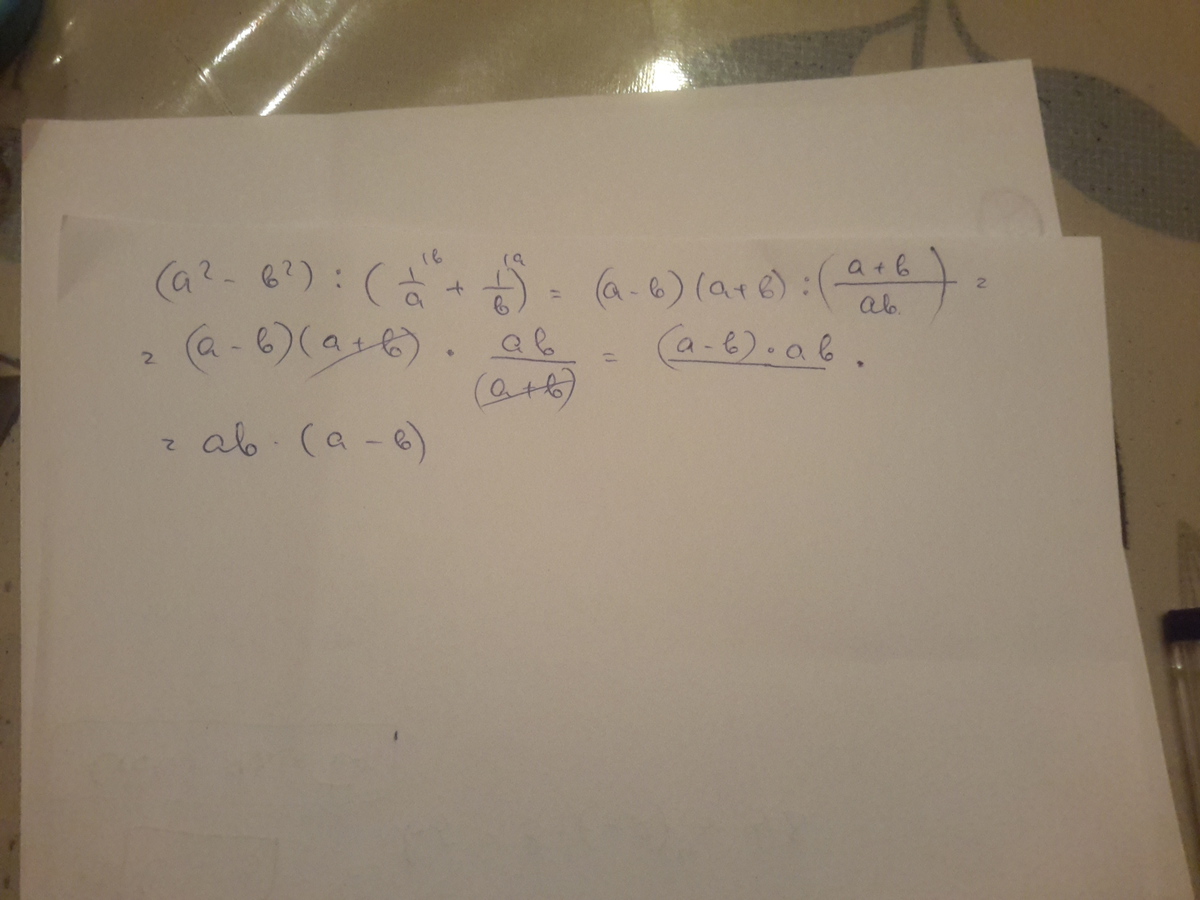 (a² - b²) : (1/a ⁽ᵇ + 1/b ⁽ᵃ) = (a-b)(a+b) : ((a+b)/ab) =
= (a-b)(a+b) · ab/(a+b) = (a-b)·ab.
= ab · (a-b)